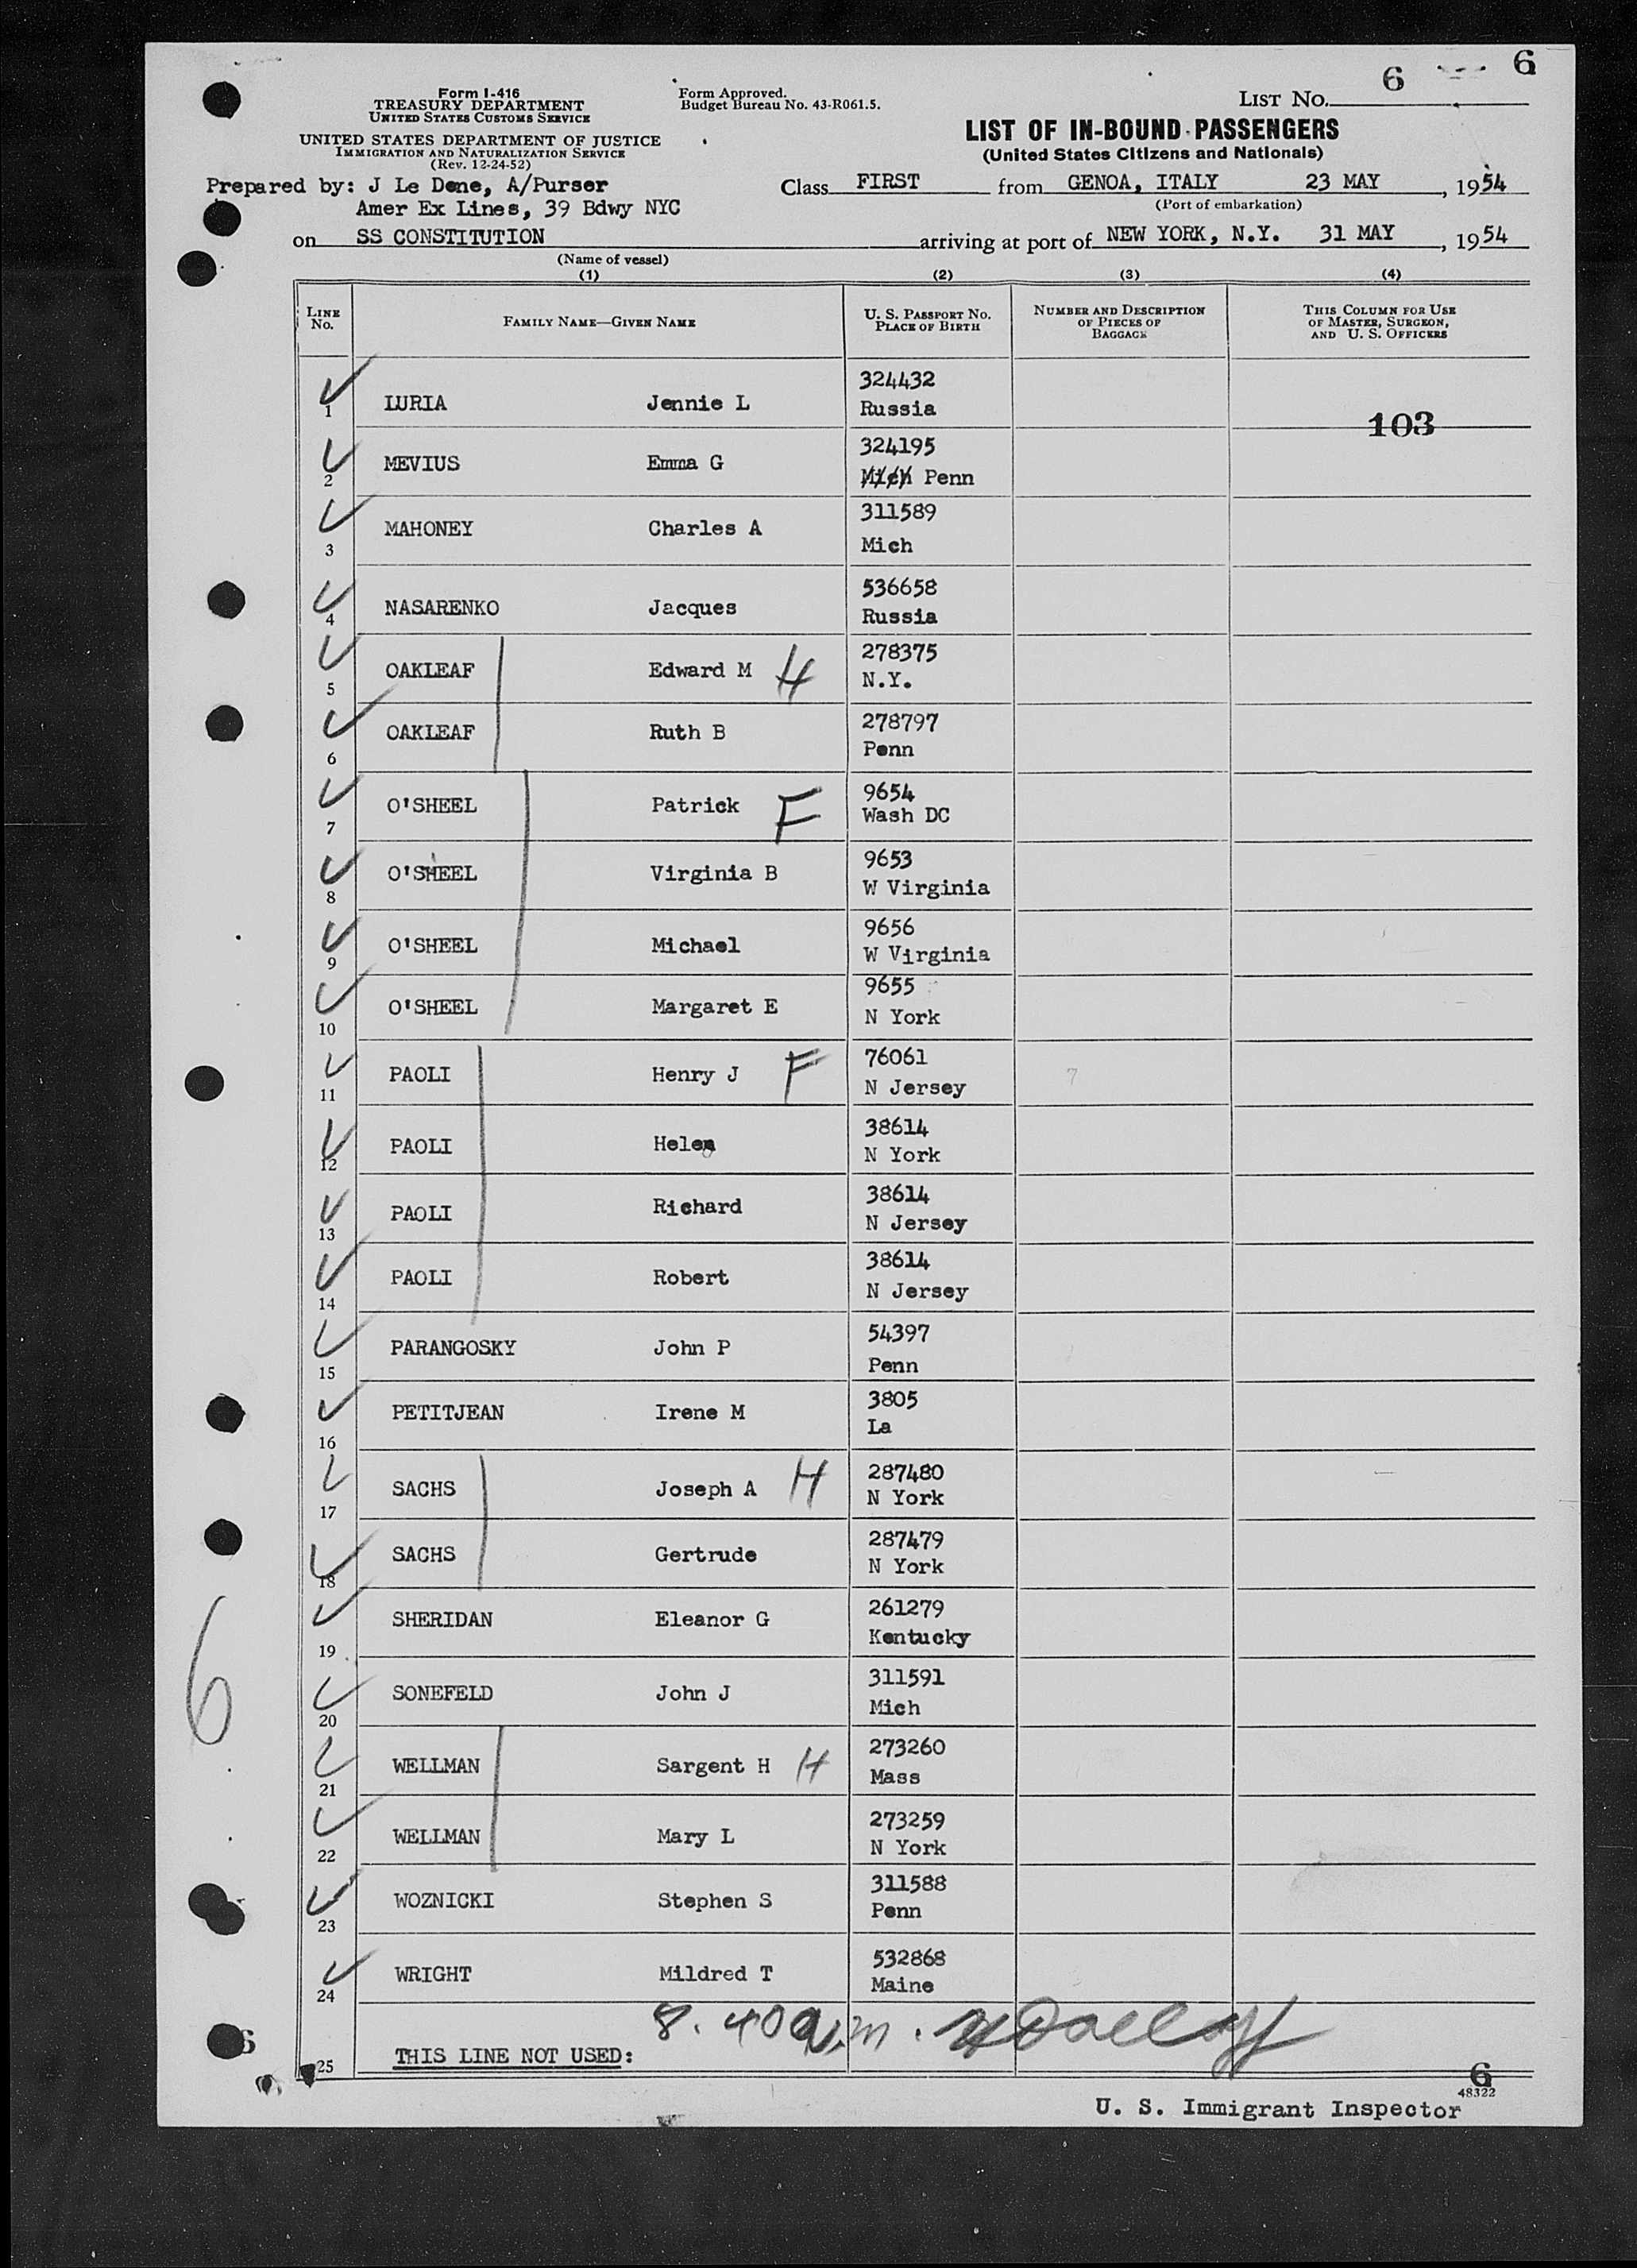 6 6
Form I-416
TREASURY DEPARTMENT
UNITED STATES CUSTOMS SERVICE
UNITED STATES DEPARTMENT OF JUSTICE
IMMIGRATION AND NATURALIZATION SERVICE
(Rev. 12-24-52)
Form Approved.
Budget Bureau No. 43-R061.5.
LIST No.
LIST OF IN-BOUND PASSENGERS
(United States Citizens and Nationals)
Prepared by: J Le Dene, A/Purser
Amer Ex Lines, 39 Bdwy NYC
Class FIRST from GENOA, ITALY 23 MAY, 1954
(Port of embarkation)
on SS CONSTITUTION arriving at port of NEW YORK, N.Y. 31 MAY, 1954
(Name of vessel)
(1) (2) (3) (4)
LINE No. FAMILY NAME—GIVEN NAME U. S. PASSPORT No. PLACE OF BIRTH NUMBER AND DESCRIPTION OF PIECES OF BAGGAGE THIS COLUMN FOR USE OF MASTER, SURGEON, AND U. S. OFFICERS
1 LURIA Jennie L 324432 Russia
103
2 MEVIUS Emma G 324195 Mich Penn
3 MAHONEY Charles A 311589 Mich
4 NASARENKO Jacques 536658 Russia
5 OAKLEAF Edward M H 278375 N.Y.
6 OAKLEAF Ruth B 278797 Penn
7 O'SHEEL Patrick F 9654 Wash DC
8 O'SHEEL Virginia B 9653 W Virginia
9 O'SHEEL Michael 9656 W Virginia
10 O'SHEEL Margaret E 9655 N York
11 PAOLI Henry J F 76061 N Jersey 7
12 PAOLI Helen 38614 N York
13 PAOLI Richard 38614 N Jersey
14 PAOLI Robert 38614 N Jersey
15 PARANGOSKY John P 54397 Penn
16 PETITJEAN Irene M 3805 La
17 SACHS Joseph A H 287480 N York
18 SACHS Gertrude 287479 N York
19 SHERIDAN Eleanor G 261279 Kentucky
6
20 SONEFELD John J 311591 Mich
21 WELLMAN Sargent H H 273260 Mass
22 WELLMAN Mary L 273259 N York
23 WOZNICKI Stephen S 311588 Penn
24 WRIGHT Mildred T 532868 Maine
8.40 a.m.
25 THIS LINE NOT USED:
6
6
48322
U. S. Immigrant Inspector